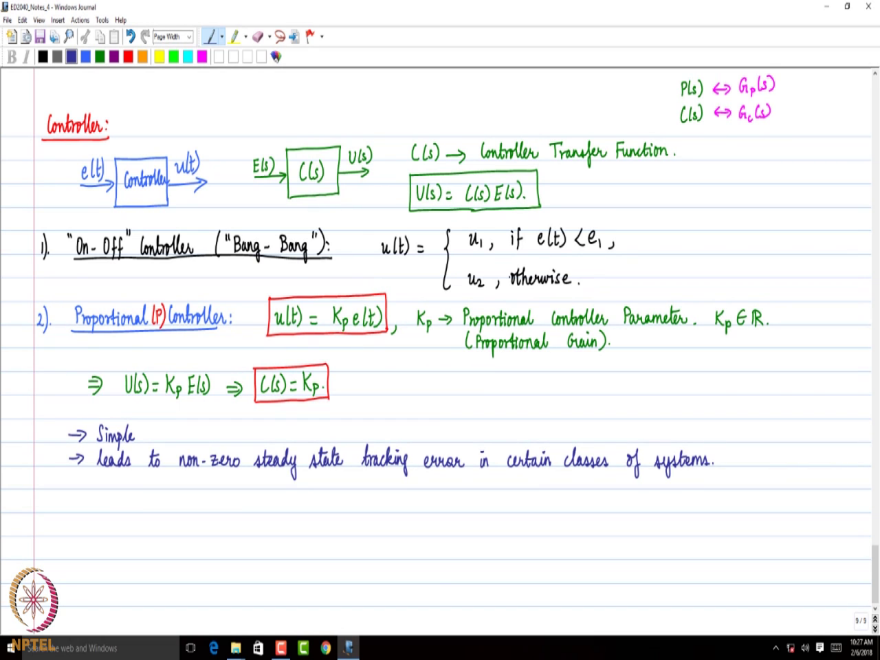 ED2040_Notes_4 - Windows Journal
File Edit View Insert Actions Tools Help
Page Width
B I
P(s) ↔ Gp(s)
C(s) ↔ Gc(s)
Controller:
e(t) Controller u(t) E(s) C(s) U(s) C(s) → Controller Transfer Function.
U(s) = C(s) E(s).
1). "On-Off" Controller ("Bang-Bang"): u(t) = { u1, if e(t) < e1,
u2, otherwise.
2). Proportional (P) Controller: u(t) = Kp e(t), Kp → Proportional Controller Parameter. Kp ∈ ℝ.
(Proportional Gain).
⇒ U(s) = Kp E(s) ⇒ C(s) = Kp.
→ Simple
→ leads to non-zero steady state tracking error in certain classes of systems.
9/9
NPTEL
the web and Windows
10:27 AM
2/6/2018